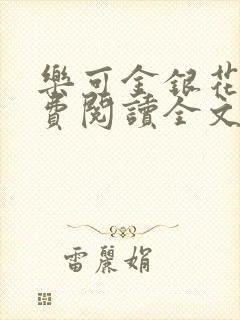 樂可金銀花
費閱讀全文
雷麗娟